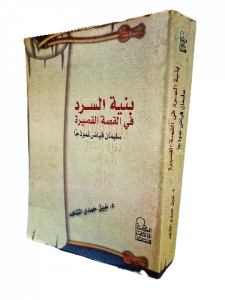 بنية السرد
في القصة القصيرة
سليمان فياض نموذجا
د. نبيل حمدي الشاهد
بنية السرد في القصة القصيرة
سليمان فياض نموذجا
د. نبيل حمدي الشاهد